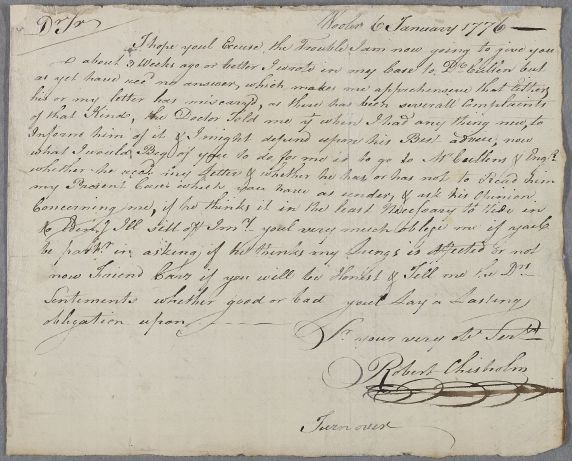 Wooler 6 January 1776
Dr Sr
I hope youl Excuse the Trouble I am now going to give you
about 3 Weeks ago or better I wrote in my Case to Dr Cullen but
as yet have recd no answer, which makes me apprehensive that Either
his or my letter has miscaryd, as there has been severall Complaints
of that Kind, the Doctor Told me if when I had any thing new, to
Inform him of it & I might depend upon his Best advice, now
what I would Beg of you to do for me is to go to Mr Cullens & Enqr
whether he recd my Letter & whether he has or has not to Read him
my Present Case which you have as under, & ask his Opinion
Concerning me, if he thinks it in the least Necessary to Ride in
to Edinr I'll sett off Immy. youl very much oblige me if youl
be partr in asking if he thinks my Lungs is affected or not
now Friend if you will be Honest & Tell me the Drs
Sentements whether good or bad youl Lay a Lasting
obligation upon
Sr your very ob Servt
Robert Chisholm
Turn over